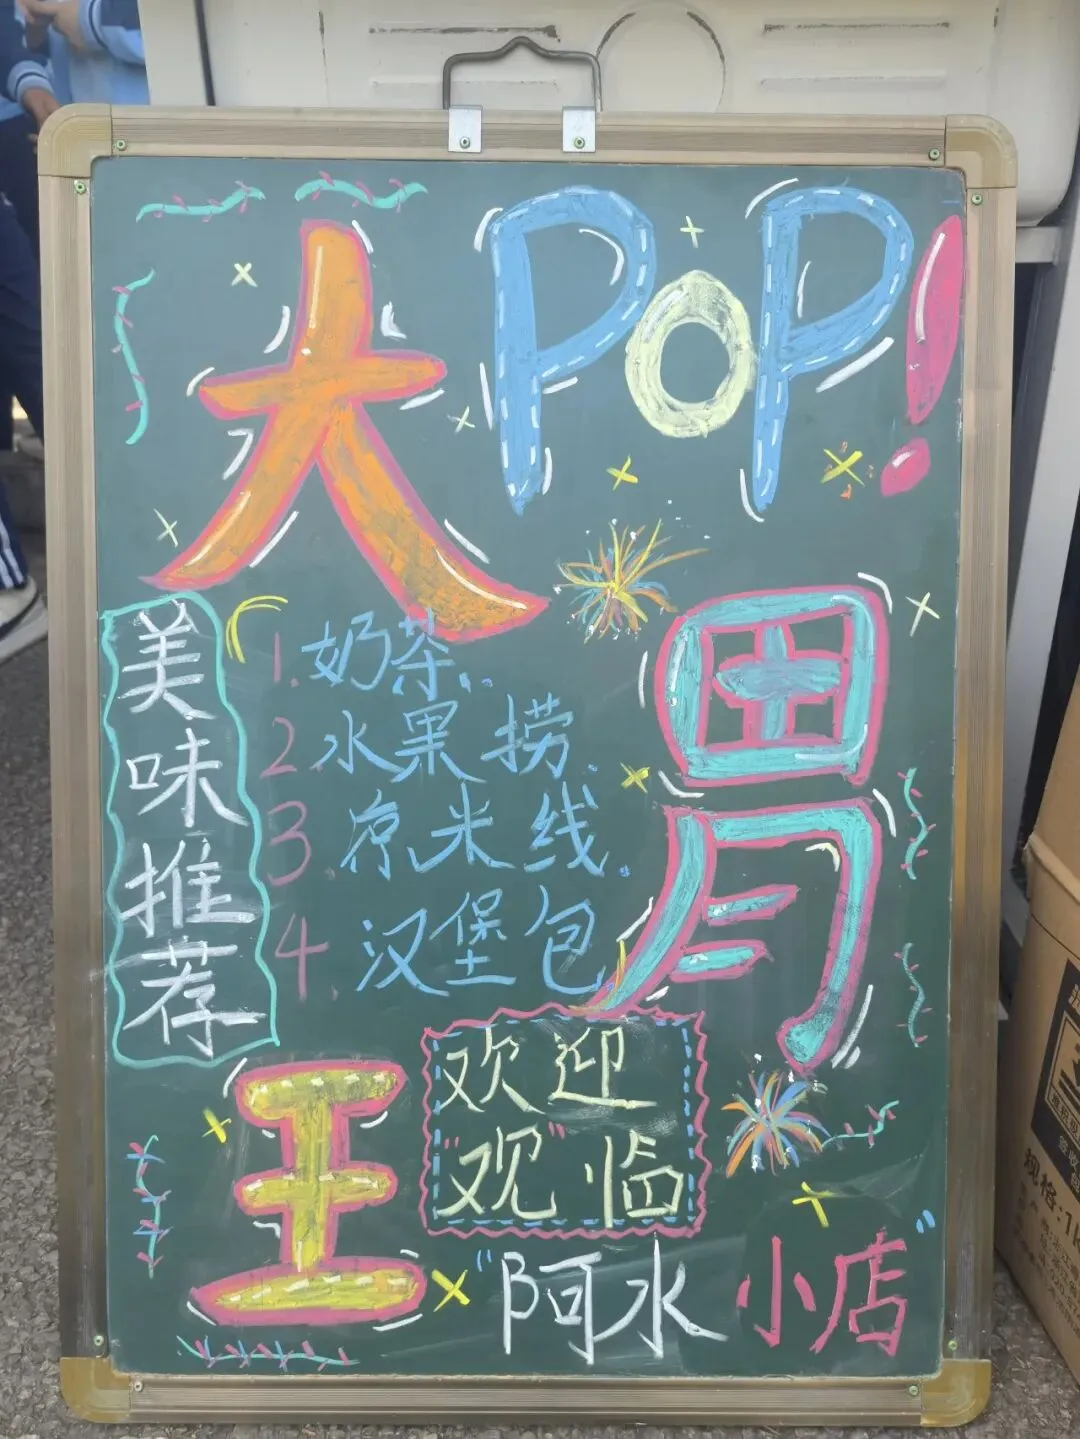 大 POP!
胃
王
美味推荐
1. 奶茶..
2. 水果捞.
3. 凉米线.
4. 汉堡包
欢迎
"观"临
"阿水小店"
规格:1